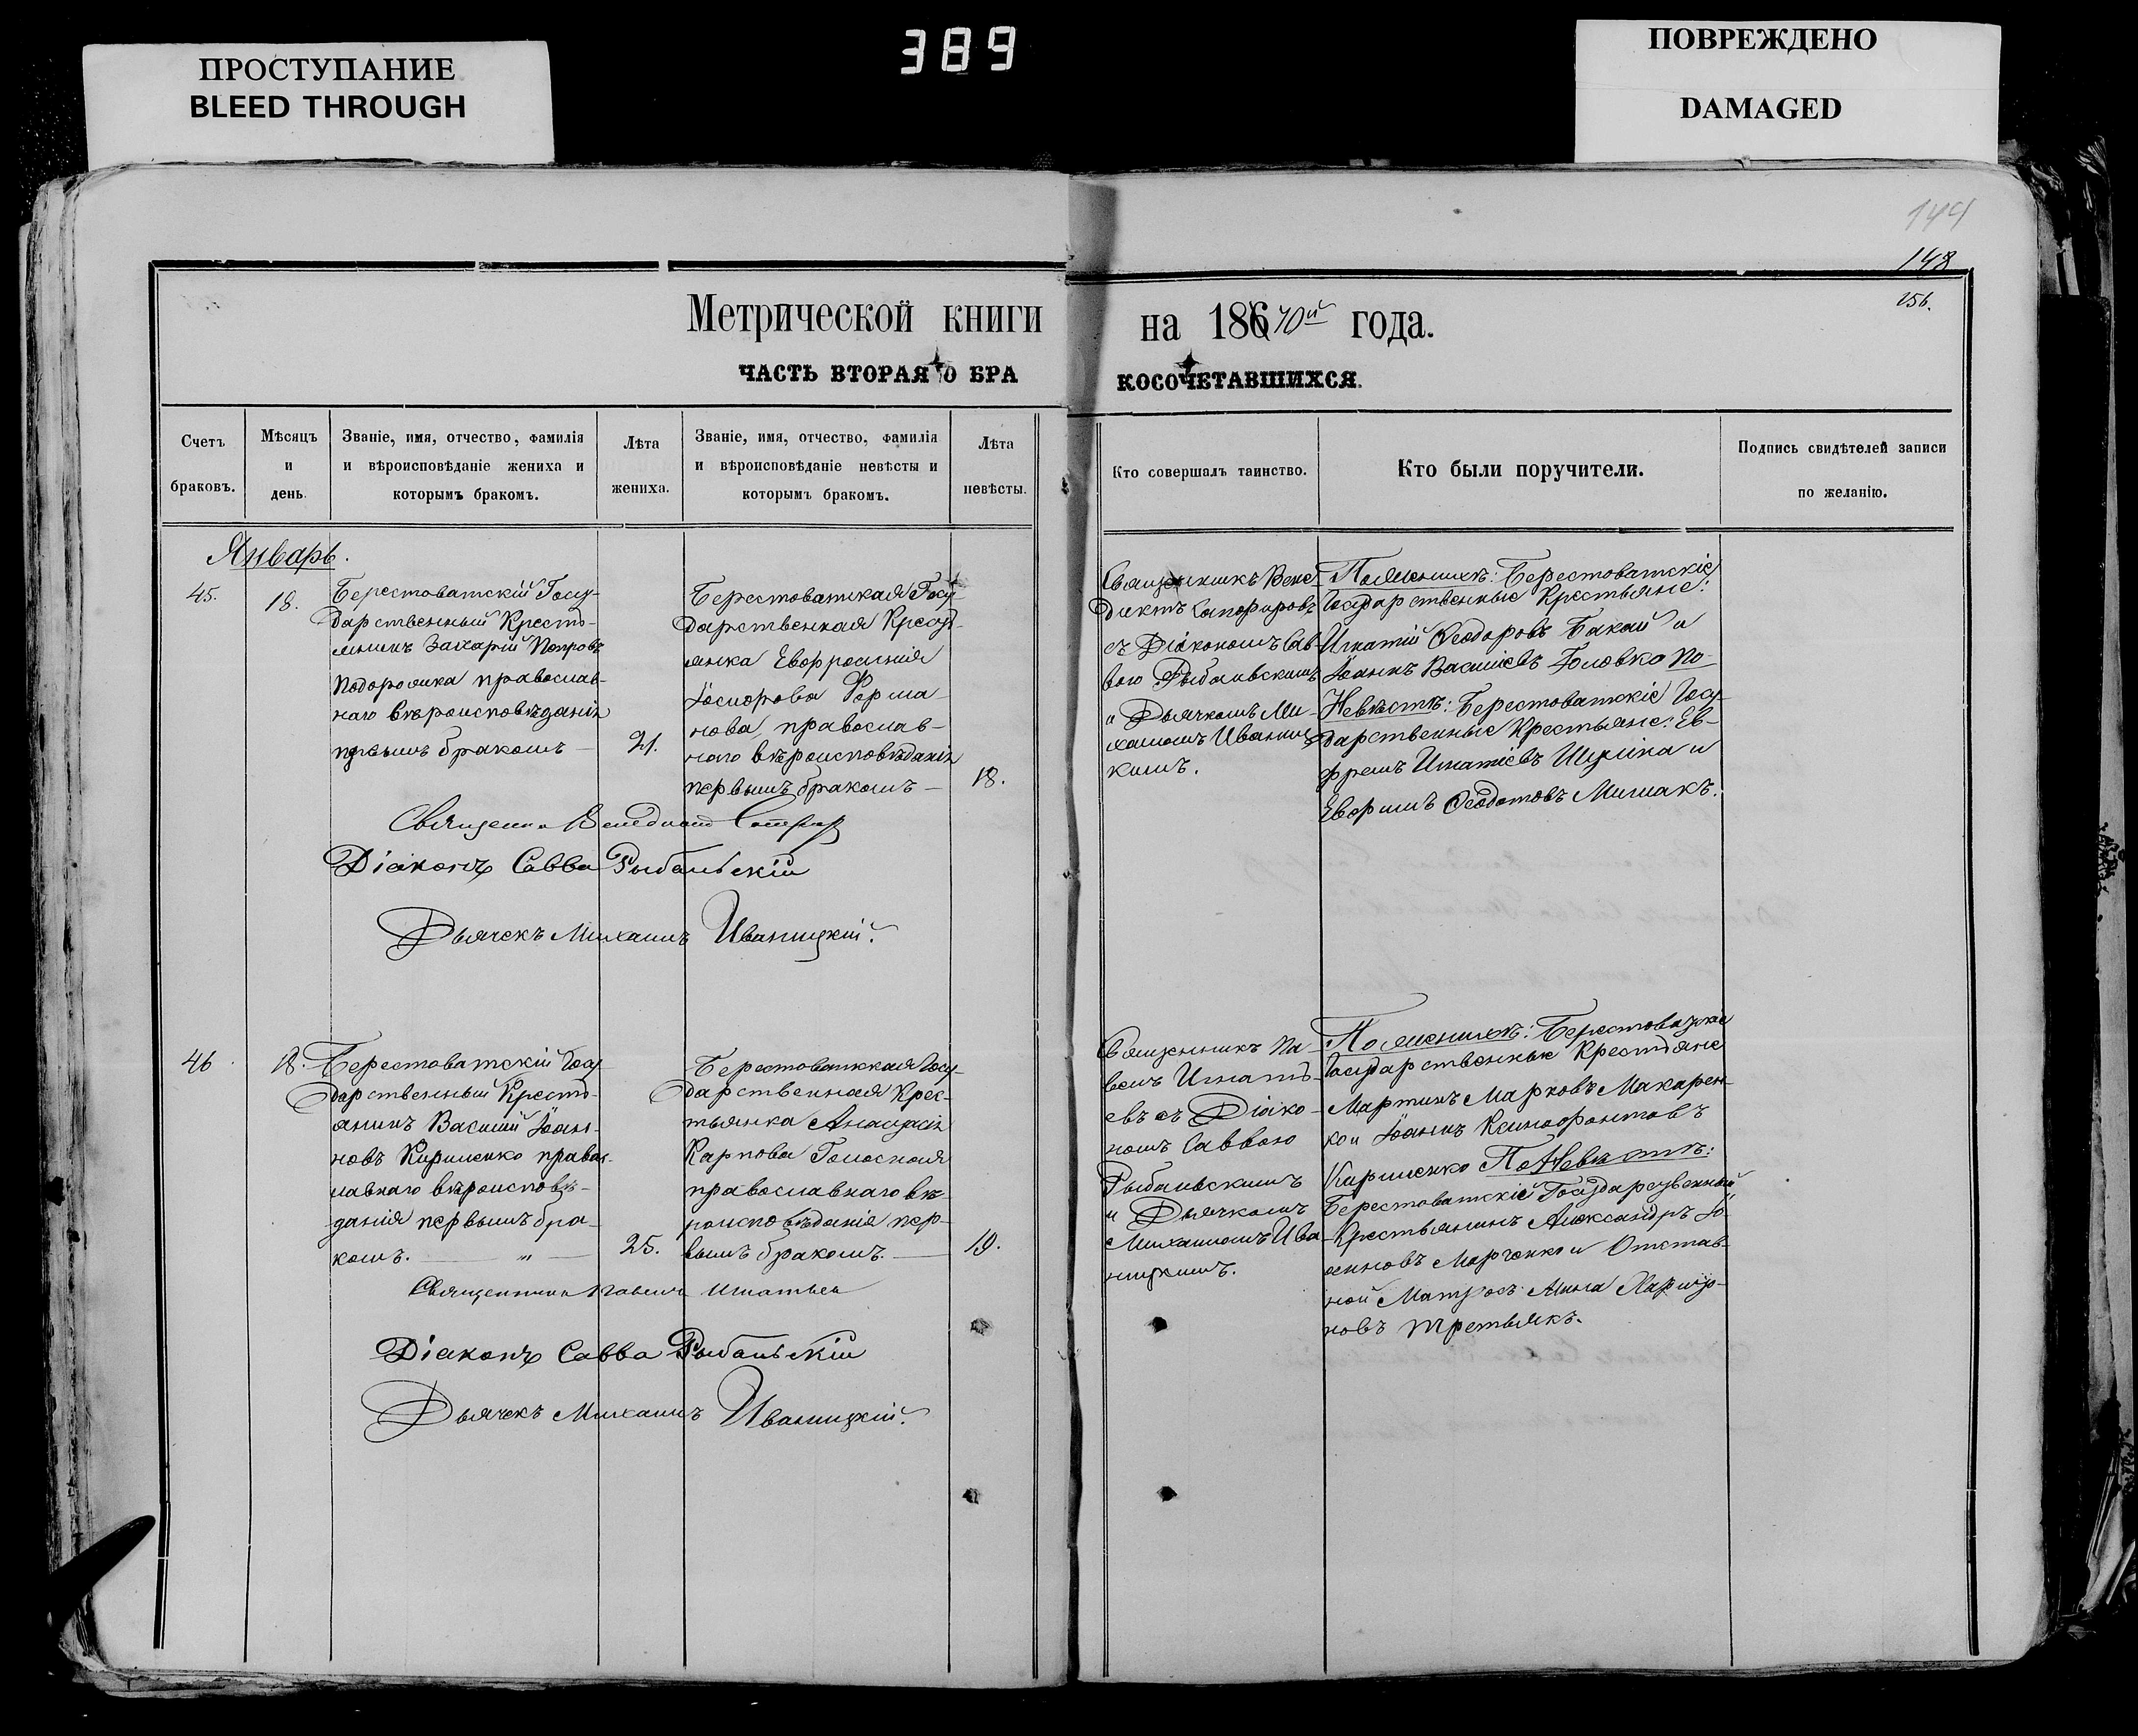 ПРОСТУПАНИЕ
BLEED THROUGH
389
ПОВРЕЖДЕНО
DAMAGED
144
148
256.
Метрической книги на 18670й года.
ЧАСТЬ ВТОРАЯ О БРАКОСОЧЕТАВШИХСЯ.
Счетъ браковъ.
Мѣсяцъ и день.
Званіе, имя, отчество, фамилія и вѣроисповѣданіе жениха и которымъ бракомъ.
Лѣта жениха.
Званіе, имя, отчество, фамилія и вѣроисповѣданіе невѣсты и которымъ бракомъ.
Лѣта невѣсты.
Кто совершалъ таинство.
Кто были поручители.
Подпись свидѣтелей записи по желанію.
Январь.
45.
18.
Берестоватскій Госу-
дарственный Кресть-
янинъ Захарій Петровъ
Подорожка православ-
наго вѣроисповѣданія
первымъ бракомъ —
21.
Берестоватская Госу-
дарственная Кресть-
янка Евфросинія
Іосифова
нова, православ-
наго вѣроисповѣданія
первымъ бракомъ —
18.
Священникъ Вене-
диктъ Сапфировъ
съ Діакономъ Сав-
вою Рыбальскимъ
и Дьячкомъ Ми-
хаиломъ Иваниц-
кимъ.
По женихѣ: Берестоватскіе
Государственные Крестьяне:
Игнатій Ѳеодоровъ Бакай и
Іоаннъ Василіевъ Головко По
Невѣстѣ: Берестоватскіе Госу-
дарственные Крестьяне: Ев-
фремъ Игнатіевъ и
Ѳеодотовъ Мишакъ.
Діаконъ Савва Рыбальскій
Дьячекъ Михаилъ Иваницкій.
46.
18.
Берестоватскій Госу-
дарственный Кресть-
янинъ Василій Іоан-
новъ Кириленко правос-
лавнаго вѣроисповѣ-
данія первымъ бра-
комъ. — " —
25.
Берестоватская Госу-
дарственная Крес-
тьянка Анастасія
Карпова Голосная
православнаго вѣ-
роисповѣданія пер-
вымъ бракомъ. —
19.
Священникъ Па-
велъ Игнать-
евъ съ Діако-
номъ Саввою
Рыбальскимъ
и Дьячкомъ
Михаиломъ Ива-
ницкимъ.
По женихѣ: Берестоватскіе
Государственные Крестьяне
Мартинъ Марковъ Макарен-
ко и Іоаннъ Ксенофонтовъ
Кириленко По Невѣстѣ:
Берестоватскій Государственный
Крестьянинъ Александръ Іо-
анновъ Марченко и Отстав-
ной Матросъ Мина Ларіо-
новъ Третьякъ.
Священникъ Павелъ Игнатьев
Діаконъ Савва Рыбальскій
Дьячекъ Михаилъ Иваницкій.